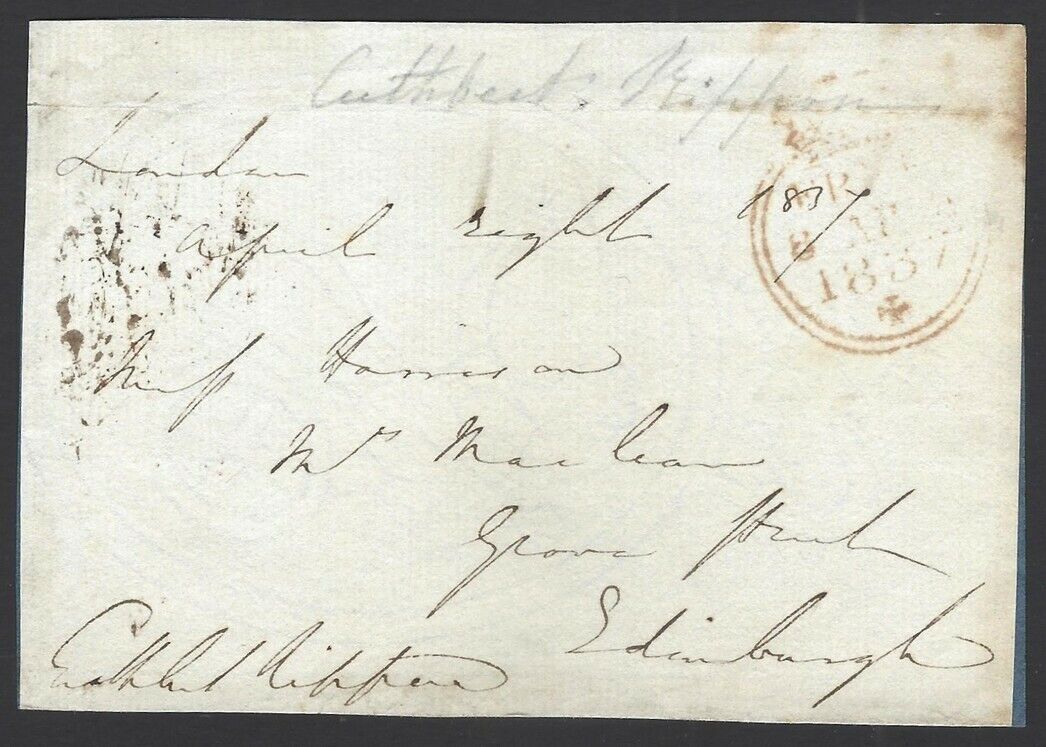 Cuthbert Rippon
London
April eight 1837
Miss Harrison
Mrs Maclean
Grove Street
Edinburgh
Cuthbert Rippon
FREE
8 AP 8
1837